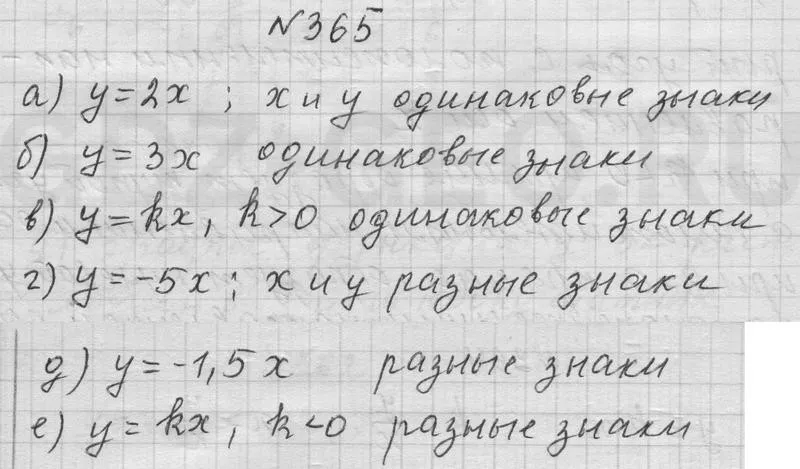 №365
а) y=2x ; x и y одинаковые знаки
б) y=3x одинаковые знаки
в) y=kx, k>0 одинаковые знаки
г) y=-5x; x и y разные знаки
д) y=-1,5x разные знаки
е) y=kx, k<0 разные знаки